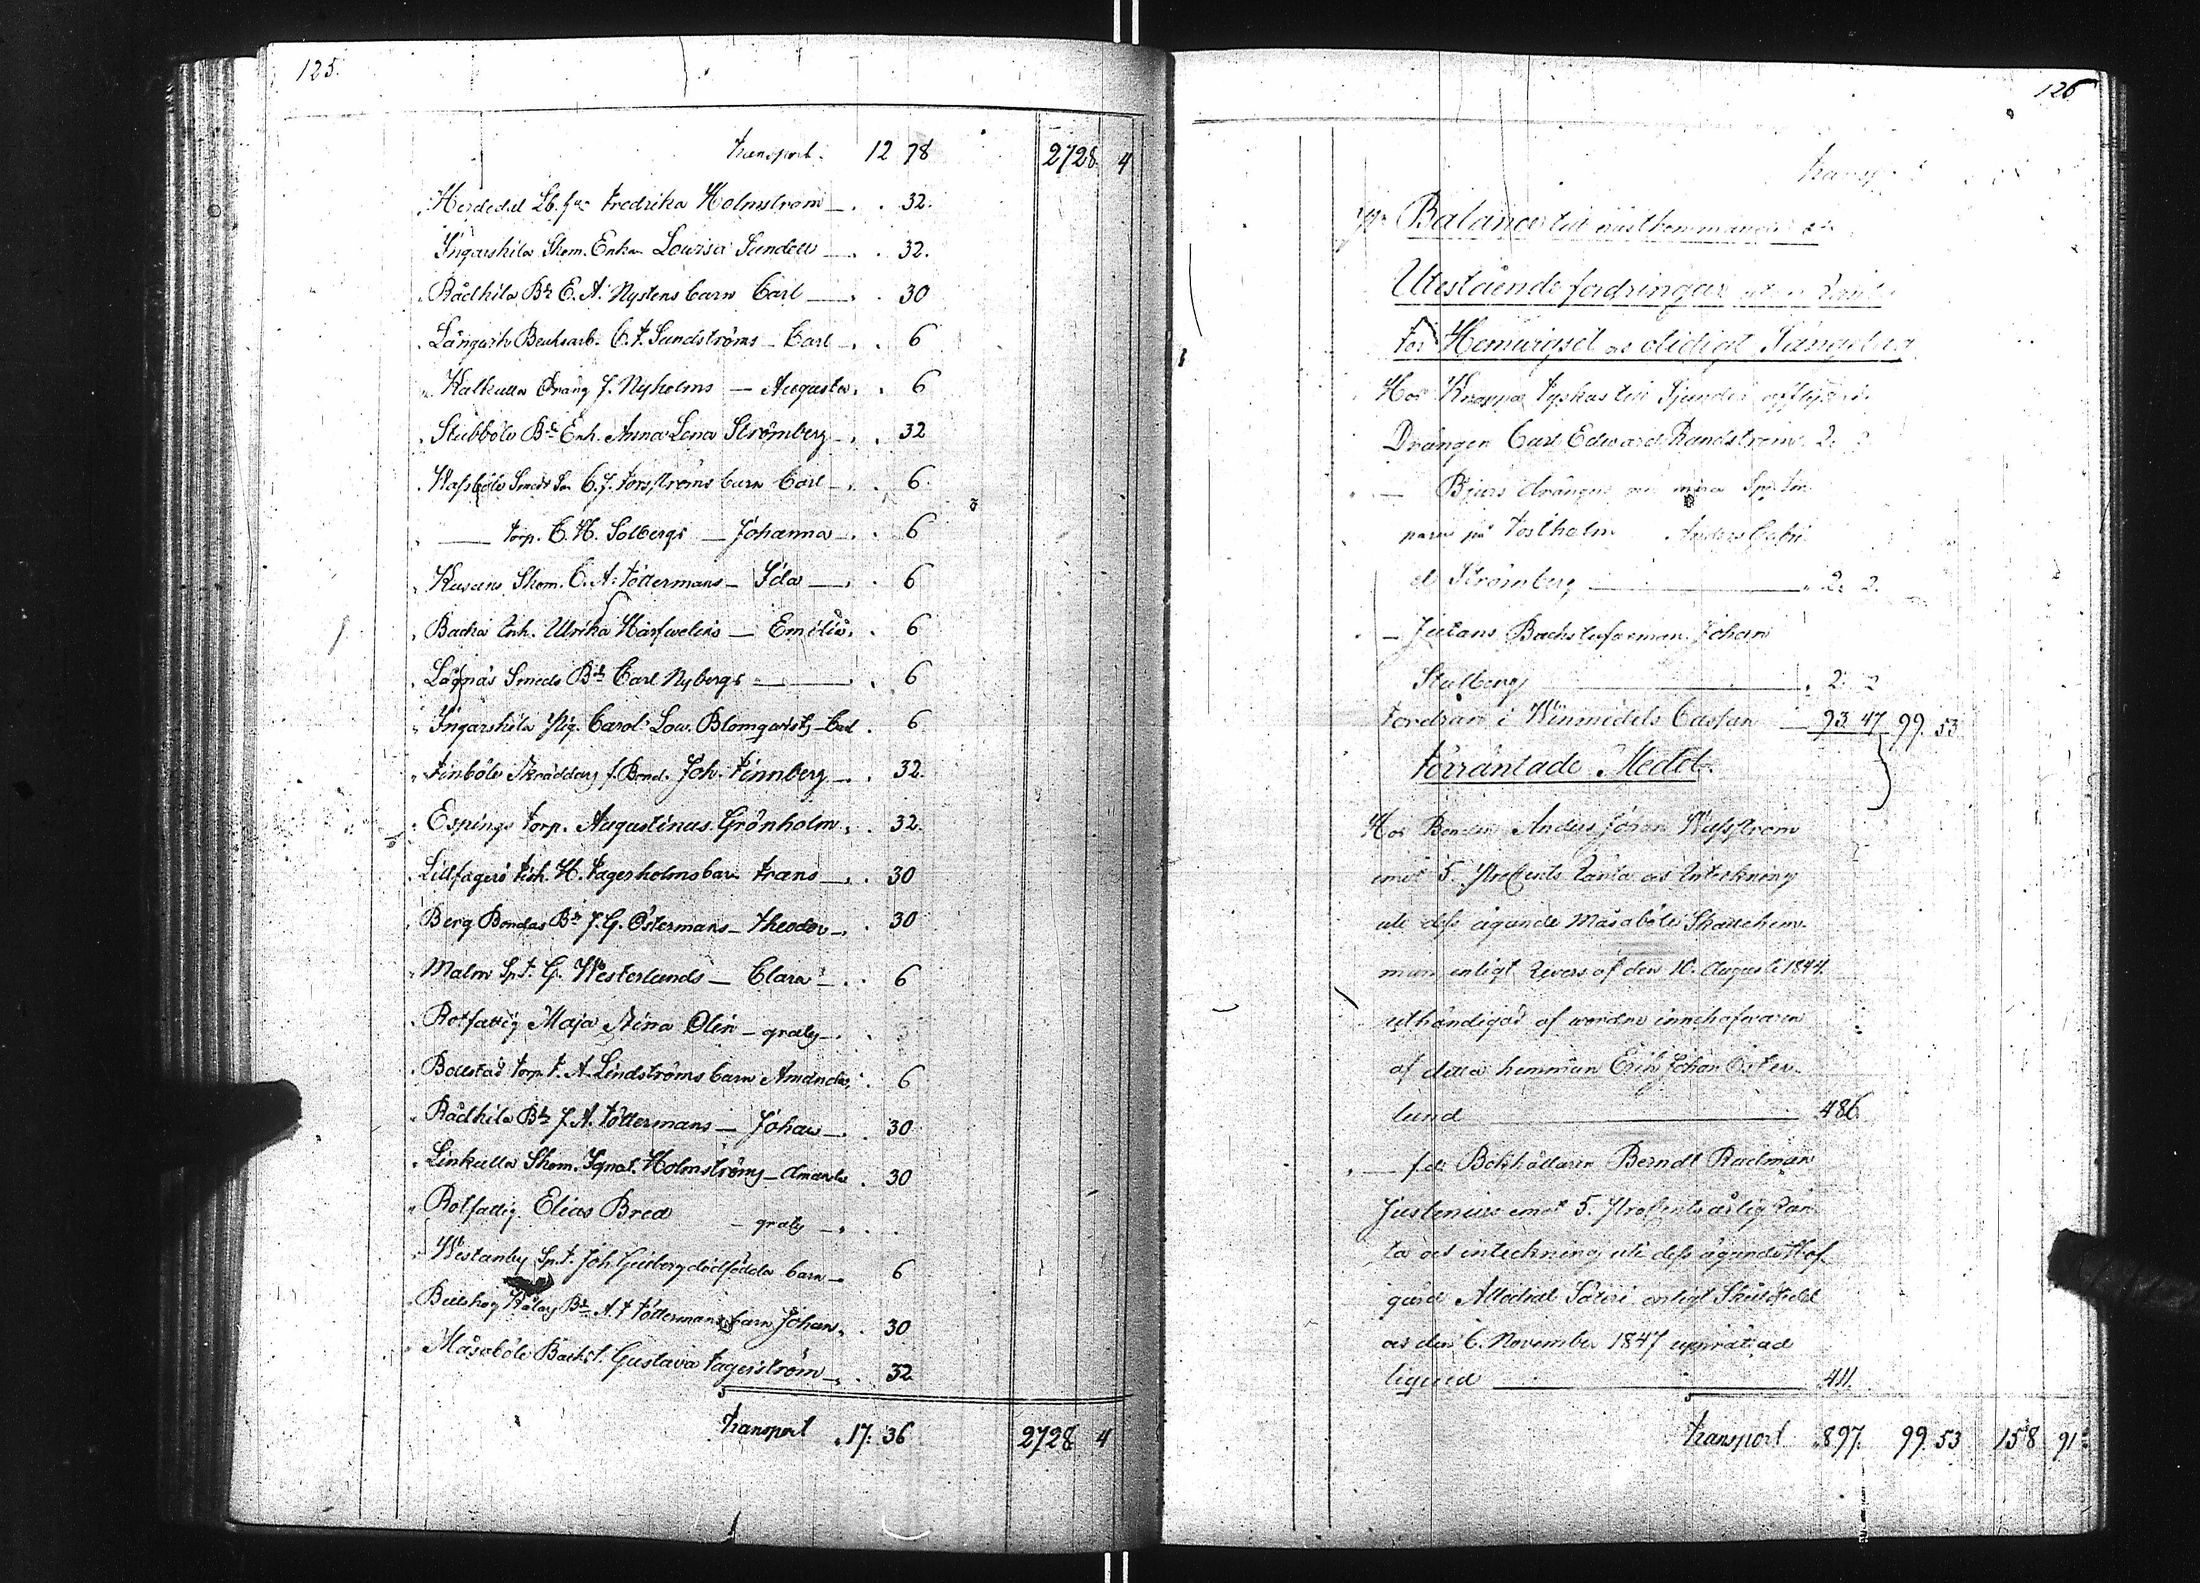 125.
Transport. 12 78 2728 4
Herdedal Lb. Fredrika Holmström 32.
Ingarskila Skom. Enka Lowisa Sundell 32.
Rådkila Bd. E. A. Nystens barn Carl 30
Långvik C. F. Sundströms — Carl 6
Kalkulla Dräng J. Nyholms — Augusta 6
Stubböle Bd. Enk. Anna Lena Strömberg 32
Wassböle Smeds Son C. J. Forsströms barn Carl 6.
— Torp. C. H. Solbergs — Johanna 6
Kusans Skom. C. A. Töttermans — Ida 6
Backa Enk. Ulrika Harfvelins — Emilia 6
Lågnäs Smeds Bd. Carl Nybergs 6
Ingarskila Pig. Carol. Low. Blomqvists — Carl 6
Finböle Skräddar f. Bond. Joh. Finnberg 32.
Espings Torp. Augustinus Grönholm 32.
Lillfagerö Fisk. H. Fagerholms barn Frans 30
Berg Bondas Bd. J. G. Östermans — Theodor 30
Malm Sp.T. G. Westerlunds — Clara 6
Rotfattig Maja Stina Olin — gratis
Bollstad Torp. F. A. Lindströms barn Amanda 6
Rådkila Bd. J. A. Töttermans — Johan 30
Linkulla Skom. Ignat. Holmströms — Amanda 30
Rotfattig Elias Bred — gratis
Westanby Sp.T. Joh. dödfödda barn 6
Bd. A. F. Töttermans barn Johan 30
Måsaböle Backst. Gustava Fagerström 32
Transport 17. 36 2728 4
126
Transp
Balance till nästkommande år
Utestående fordringar utan Ränta
för Hemvigsel och olidigt Sängelag
Hos Knappa Tyskas till Sjundeå afflyttade
Drängen Carl Edward Randström 2.
— Bjurs drängen nu mera Sp.Tor
paren på Tostholm Anders Gabri
el Strömberg 2. 2.
— Jutans Backstufveman Johan
Stålberg 2. 2
Fordran i Winmedels Cassan 93. 47 99. 53
Förräntade Medel.
Hos Bonden Anders Johan Wassström
emot 5. ProCents Ränta och Inteckning
uti dess ägande Måsaböle Skattehem-
man enligt Revers af den 10. Augusti 1844.
uthändigad af wordne innehafvaren
af detta hemman Erik Johan Öster-
lund 486.
— f.d. Bokhållaren Berndt Rudman
Justenius emot 5. ProCents årlig Rän
ta och inteckning uti dess ägande Hof
gård Allodial Säteri enligt Skuldsedel
den 6. November 1847 upprättad
liqvid 411.
Transport 897. 99. 53 158 91